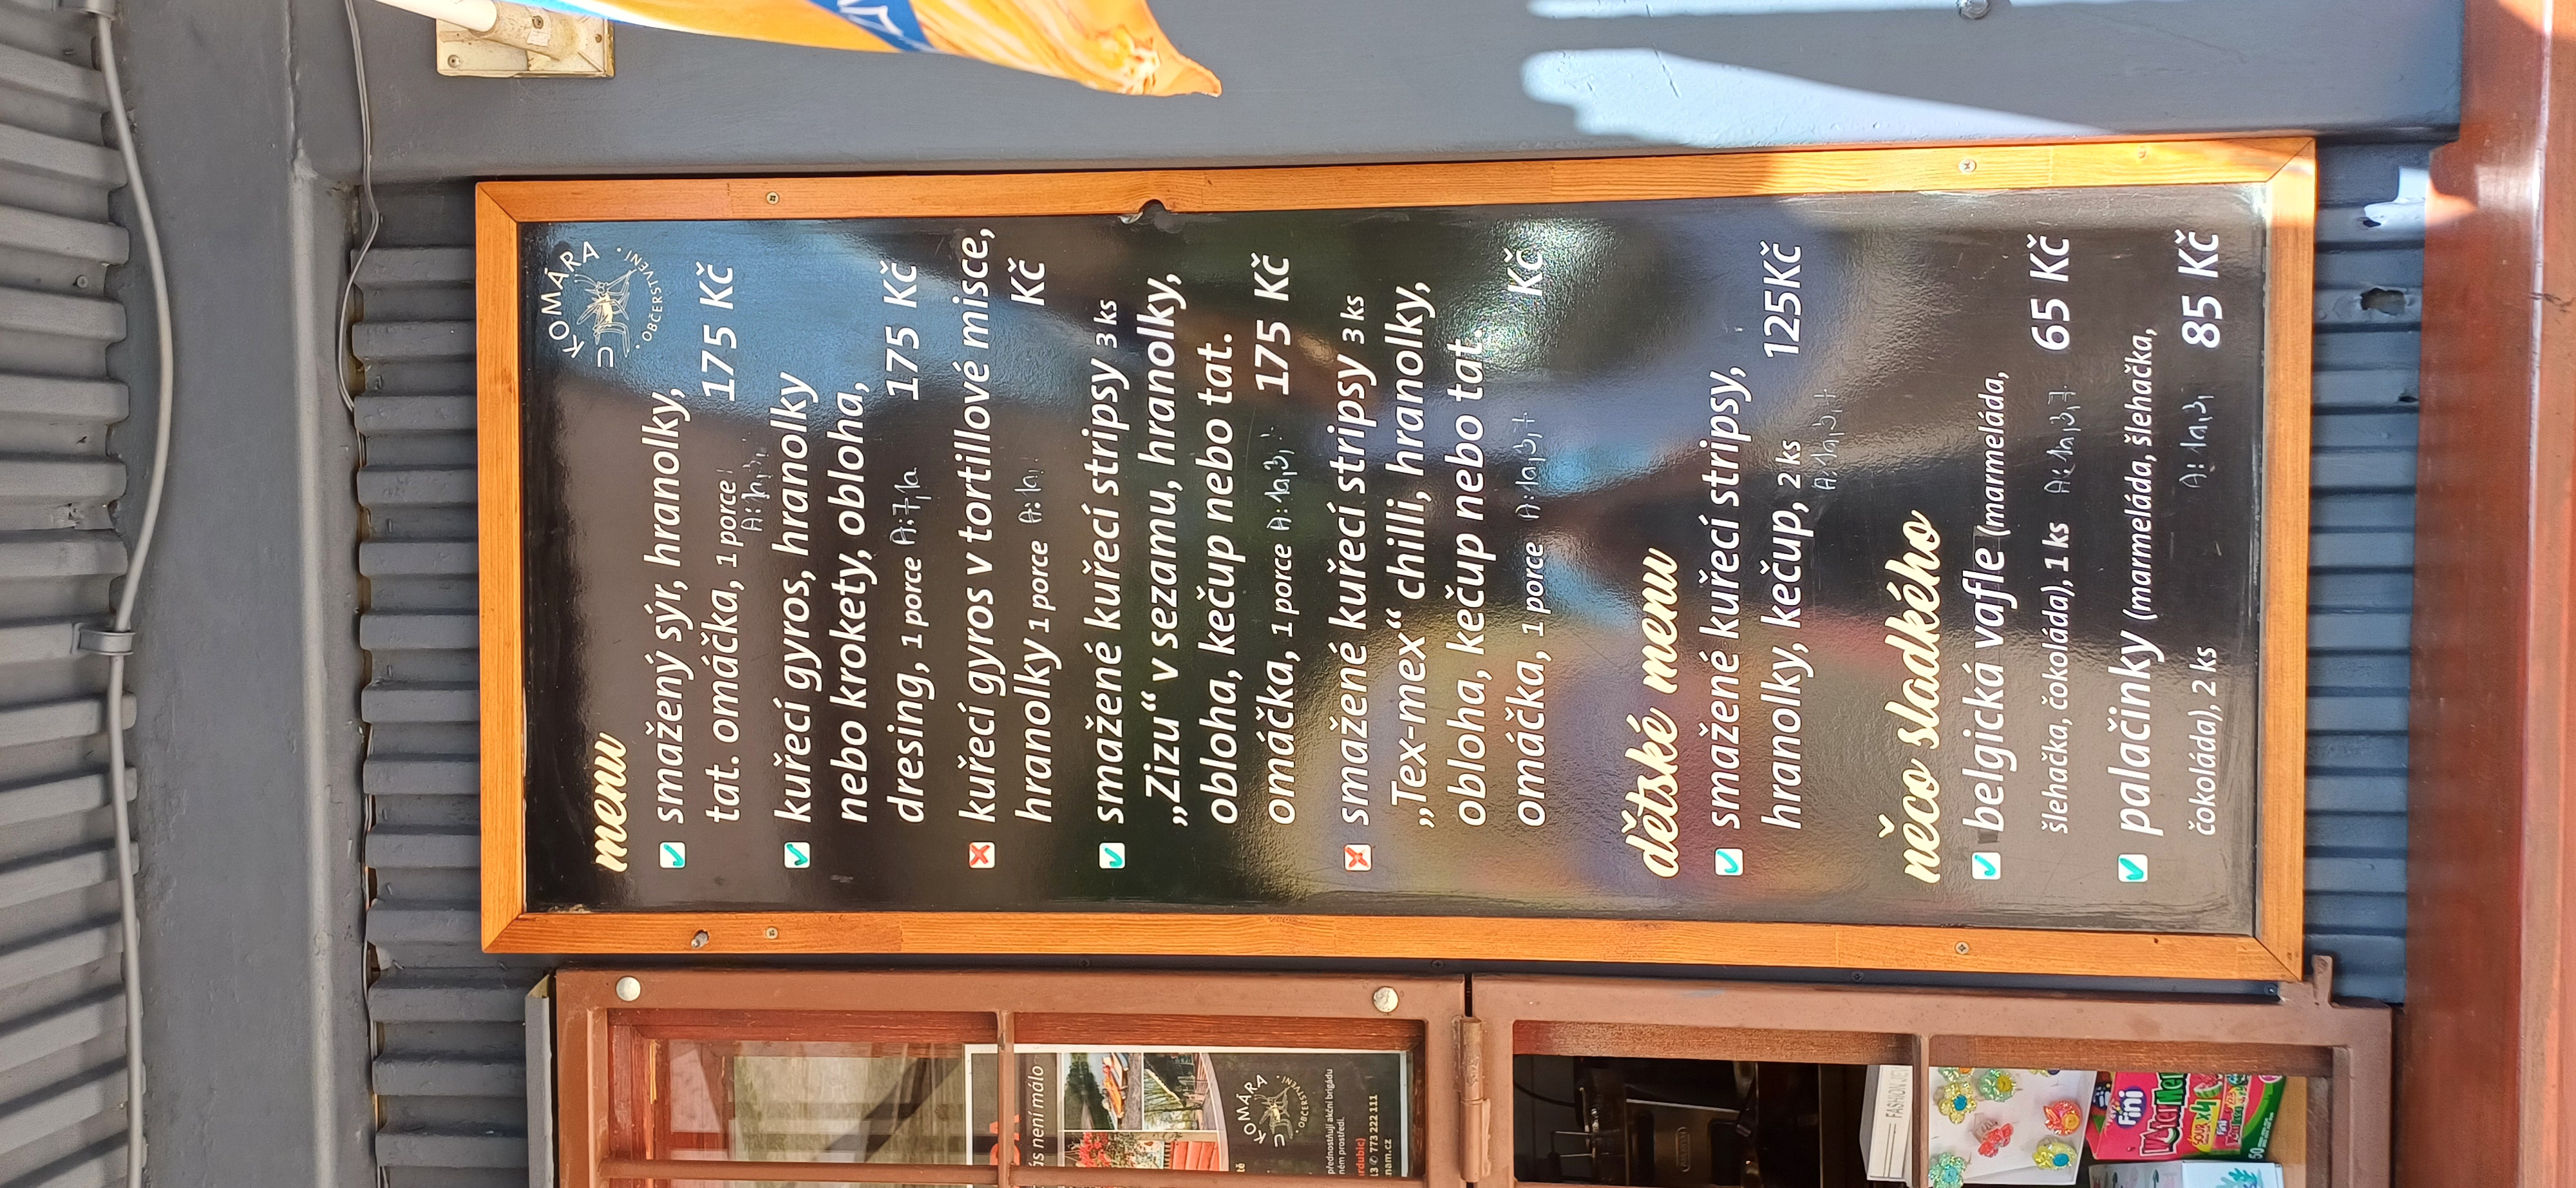 U KOMÁRA
· OBČERSTVENÍ ·
menu
smažený sýr, hranolky,
tat. omáčka, 1 porce 175 Kč
kuřecí gyros, hranolky
nebo krokety, obloha,
dresing, 1 porce A:7,1a 175 Kč
kuřecí gyros v tortillové misce,
hranolky 1 porce Kč
smažené kuřecí stripsy 3 ks
„Zizu“ v sezamu, hranolky,
obloha, kečup nebo tat.
omáčka, 1 porce A:1a,3, 175 Kč
smažené kuřecí stripsy 3 ks
„Tex-mex“ chilli, hranolky,
obloha, kečup nebo tat.
omáčka, 1 porce A:1a,3,7 Kč
dětské menu
smažené kuřecí stripsy,
hranolky, kečup, 2 ks 125Kč
A:1a,3,7
něco sladkého
belgická vafle (marmeláda,
šlehačka, čokoláda), 1 ks A:1a,3,7 65 Kč
palačinky (marmeláda, šlehačka,
čokoláda), 2 ks A:1a,3, 85 Kč
ás není málo
U KOMÁRA
OBČERSTVENÍ
přednostňují akční brigádu
ném prostředí.
rdubic)
13 773 222 111
nam.cz
FASHION JEW
Fini
SOUR X4